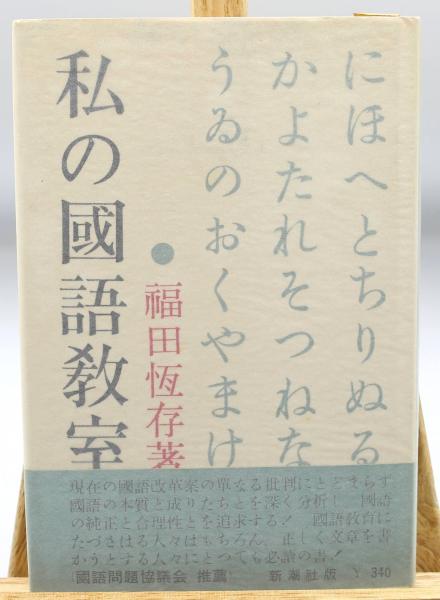 にほへとちりぬる
かよたれそつねな
うゐのおくやまけ
福田恆存著
私の國語敎室
現在の國語改革案の單なる批判にとどまらず
國語の本質と成りたちとを深く分析し 國語
の純正と合理性とを追求する! 國語敎育に
たづさはる人々はもちろん、正しく文章を書
かうとする人々にとつても必讀の書!
(國語問題協議會 推薦) 新潮社版 ¥ 340